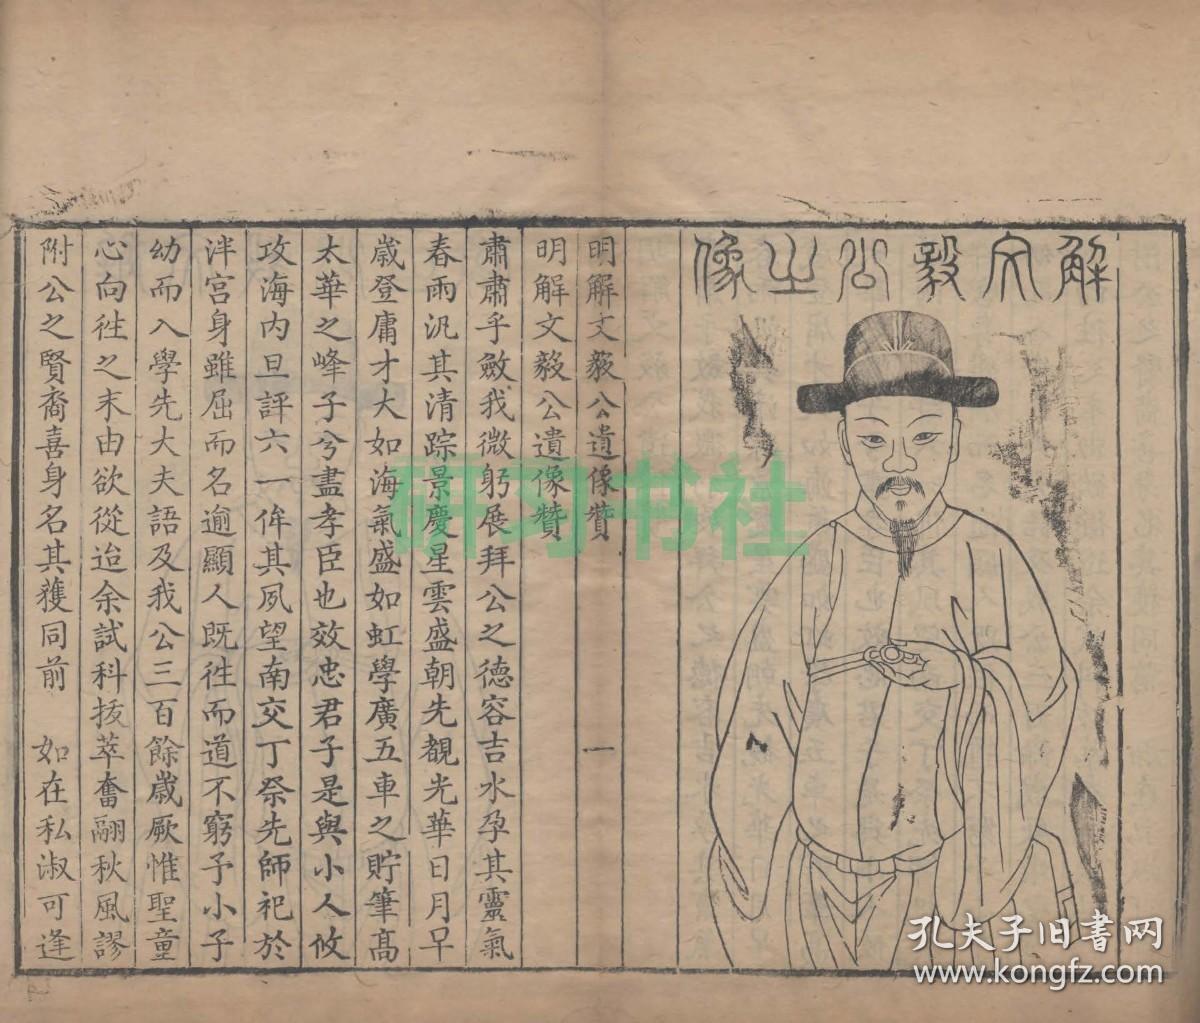 解文毅公之像
明解文毅公遺像贊 一
明解文毅公遺像贊
肅肅乎斂我微躬展拜公之德容吉水孕其靈氣
春雨汎其清踪景慶星雲盛朝先覩光華日月早
歲登庸才大如海氣盛如虹學廣五車之貯筆高
太華之峰子兮盡孝臣也效忠君子是與小人攸
攻海內旦評六一侔其夙望南交丁祭先師祀於
泮宮身雖屈而名逾顯人既徃而道不窮予小子
幼而入學先大夫語及我公三百餘歲厥惟聖童
心向徃之末由欲從迨余試科拔萃奮翮秋風謬
附公之賢裔喜身名其獲同前 如在私淑可逢
研习书社
孔夫子旧书网
www.kongfz.com